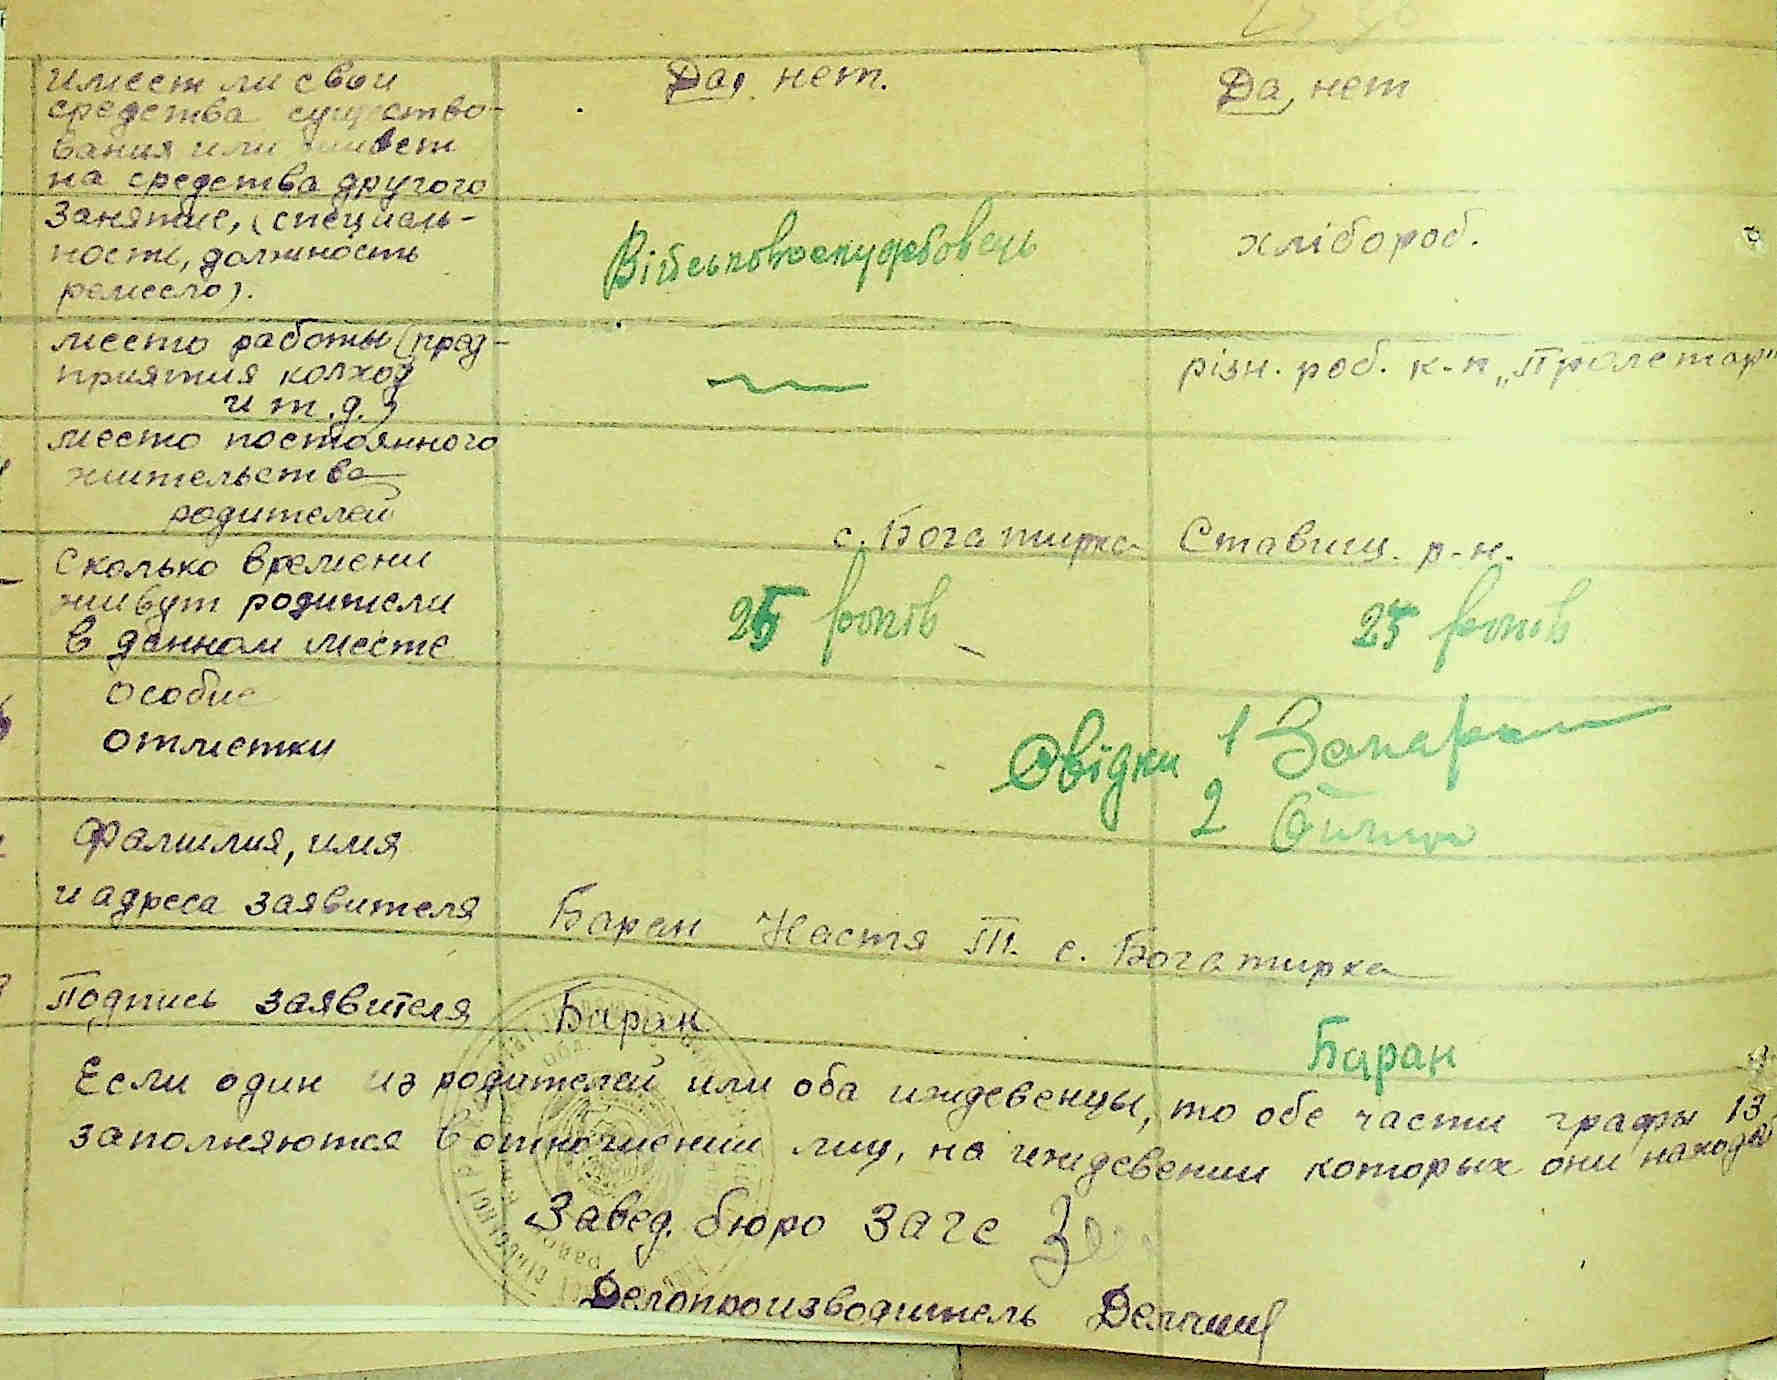 имеет ли свои
средства существо-
вания или живет
на средства другого
Да, нет.
Да, нет
Занятие, (специаль-
ность, должность
ремесло).
Військовослужбовець
хлібороб.
место работы (пред-
приятия колхоз
и т.д.)
різн. роб. к-п „Пролетар"
место постоянного
жительства
родителей
с. Богатирка Ставищ. р-н.
Сколько времени
живут родители
в данном месте
25 років
25 років
Особие
отметки
Свідки 1
2
Фамилия, имя
и адреса заявителя
Баран Настя Т. с. Богатирка
Подпись заявителя
Баран
Баран
Если один из родителей или оба иждевенцы, то обе части графы 13
заполняются в отношении лиц, на иждевении которых они находят
Завед. бюро загс
Делопроизводитель